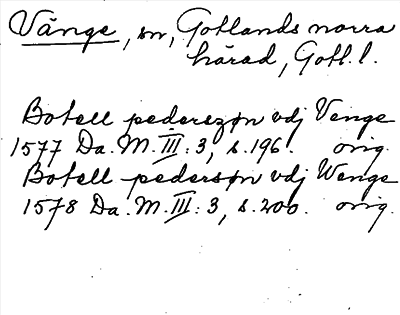 Vänge, sn, Gotlands norra
härad, Gotl. l.
Botell pederszøn vdj Venge
1577 Da. M. III: 3, s. 196. orig.
Botell pedersøn vdj Wenge
1578 Da. M. III: 3, s. 200. orig.